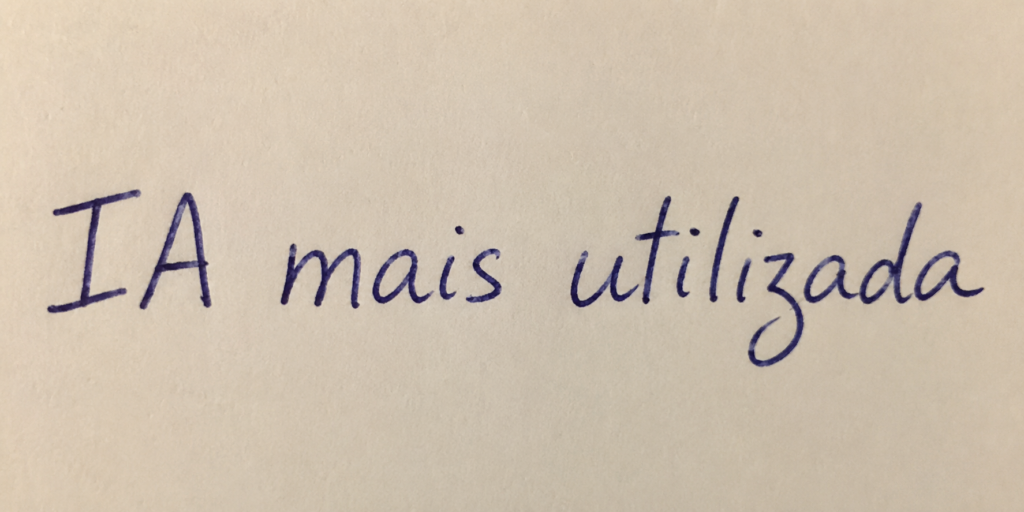 IA mais utilizada